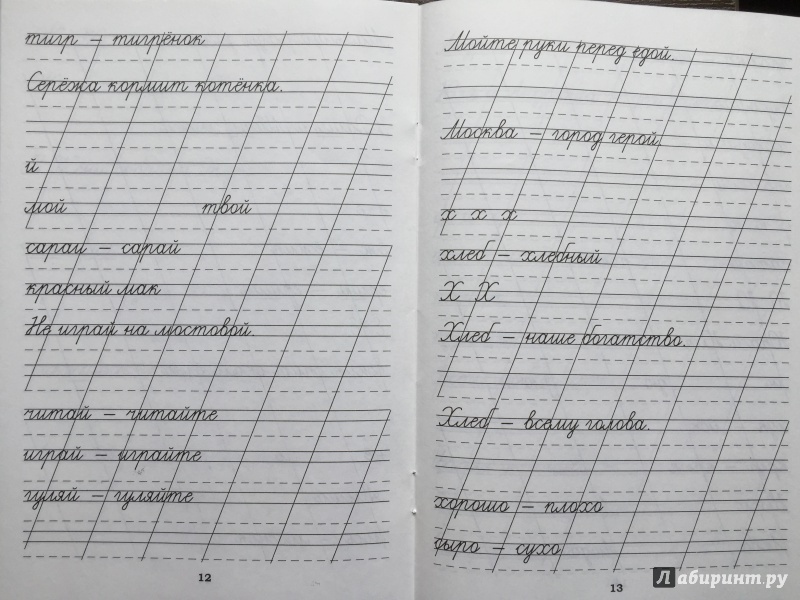 тигр – тигрёнок
Серёжа кормит котёнка.
й
мой твой
сарай – сарай
красный мак
Не играй на мостовой.
читай – читайте
играй – играйте
гуляй – гуляйте
12
Мойте руки перед едой.
Москва – город герой.
х х х
хлеб – хлебный
Х Х
Хлеб – наше богатство.
Хлеб – всему голова.
хорошо – плохо
сыро – сухо
13
Лабиринт.ру